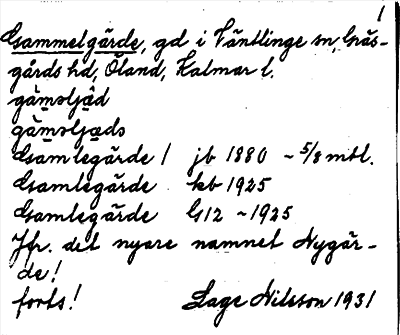 1
Gammelgärde, gd i Väntlinge sn, Gräs-
gårds hd, Öland, Kalmar l.
Gamlegärde 1 jb 1880 ~ 5/8 mtl.
Gamlegärde kb 1925
Gamlegärde G12 ~ 1925
Jfr. det nyare namnet Nygär-
de!
forts! Lage Nilsson 1931